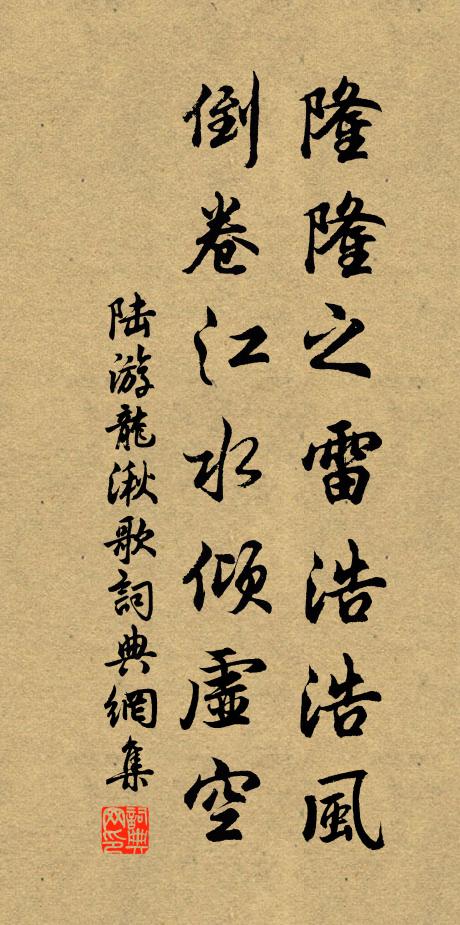 隆隆之雷浩浩風
倒卷江水傾虛空
陆游龍湫歌詞典網集
詞典网印